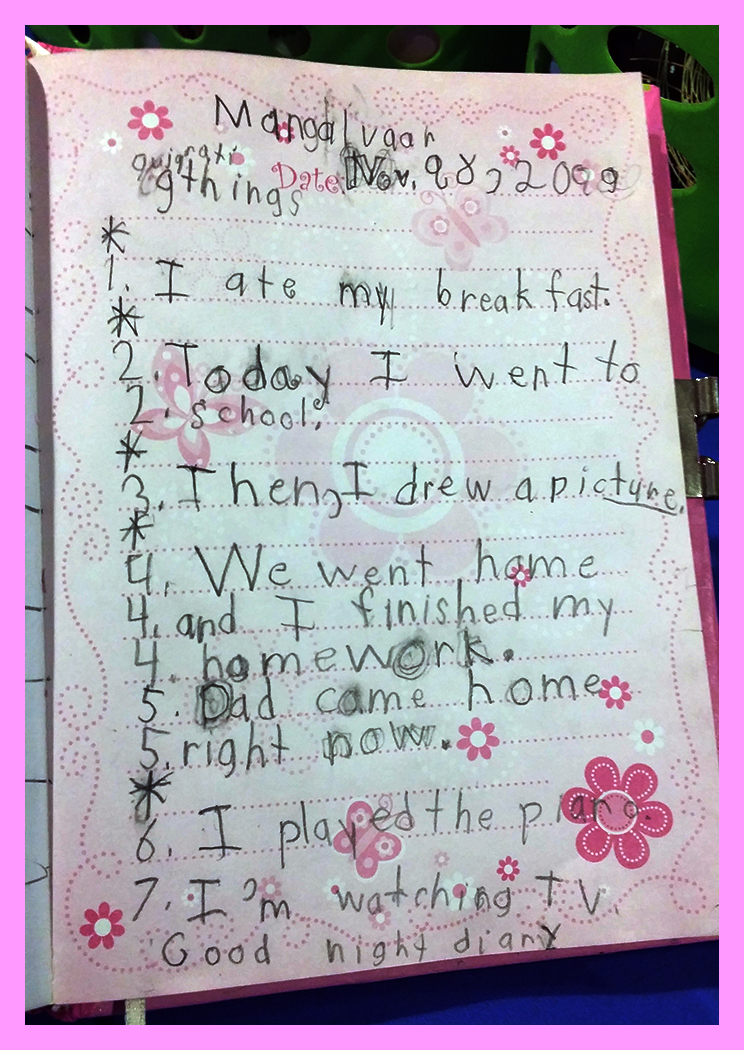 Mangalvaar
gujrati Date: Nov. 2009
things
*
1. I ate my breakfast.
*
2. Today I went to
2. school.
*
3. Then, I drew a picture.
*
4. We went home
4. and I finished my
4. homework.
5. Dad came home
5. right now.
*
6. I played the piano.
7. I'm watching TV.
Good night diary